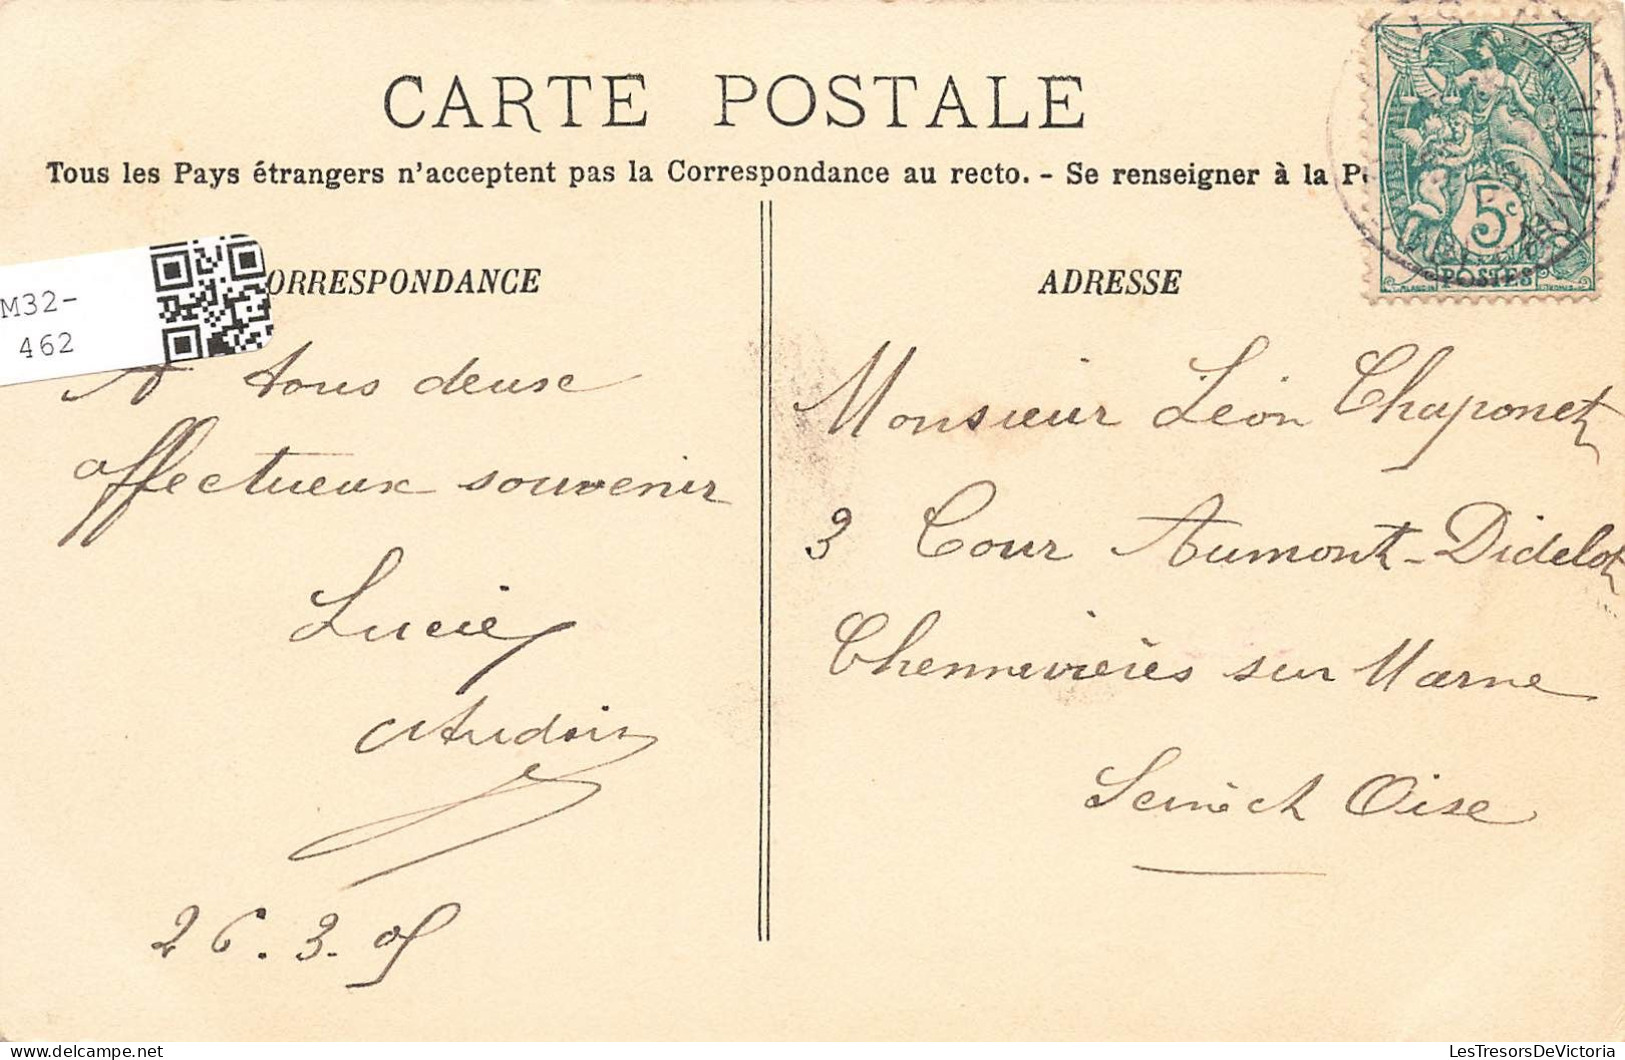 CARTE POSTALE
Tous les Pays étrangers n'acceptent pas la Correspondance au recto. - Se renseigner à la P
ORRESPONDANCE
M32-
462
A tous deux
affectueux souvenir
Lucie
Audoin
26.3.05
ADRESSE
Monsieur Léon Chaponet
3 Cour Aumont-Didelot
Chennevières sur Marne
Seine et Oise
5c
POSTES
LesTresorsDeVictoria